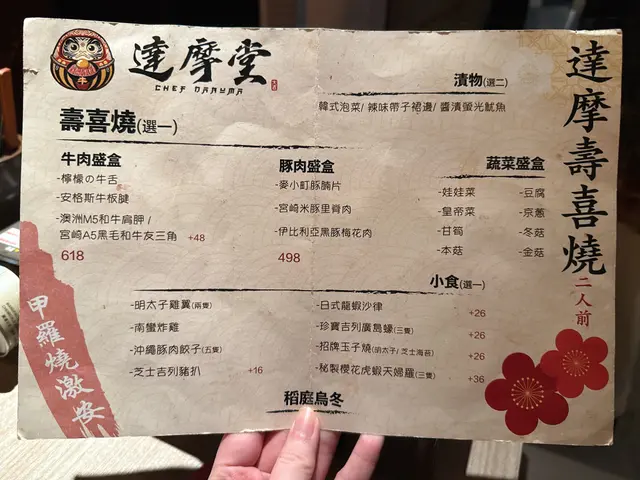 牛
達摩堂
CHEF DARUMA
壽喜燒(選一)
牛肉盛盒
-檸檬の牛舌
-安格斯牛板腱
-澳洲M5和牛肩胛 /
宮崎A5黑毛和牛友三角 +48
618
豚肉盛盒
-麥小町豚腩片
-宮崎米豚里脊肉
-伊比利亞黑豚梅花肉
498
漬物(選二)
韓式泡菜/ 辣味帶子裙邊/ 醬漬螢光魷魚
蔬菜盛盒
-娃娃菜 -豆腐
-皇帝菜 -京蔥
-甘筍 -冬菇
-本菇 -金菇
小食(選一)
-明太子雞翼(兩隻)
-南蠻炸雞
-沖繩豚肉餃子(五隻)
-芝士吉列豬扒 +16
-日式龍蝦沙律 +26
-珍寶吉列廣島蠔(三隻) +26
-招牌玉子燒(明太子/ 芝士海苔) +26
-秘製櫻花虎蝦天婦羅(三隻) +36
稻庭烏冬
達摩壽喜燒
二人前
甲羅燒激安